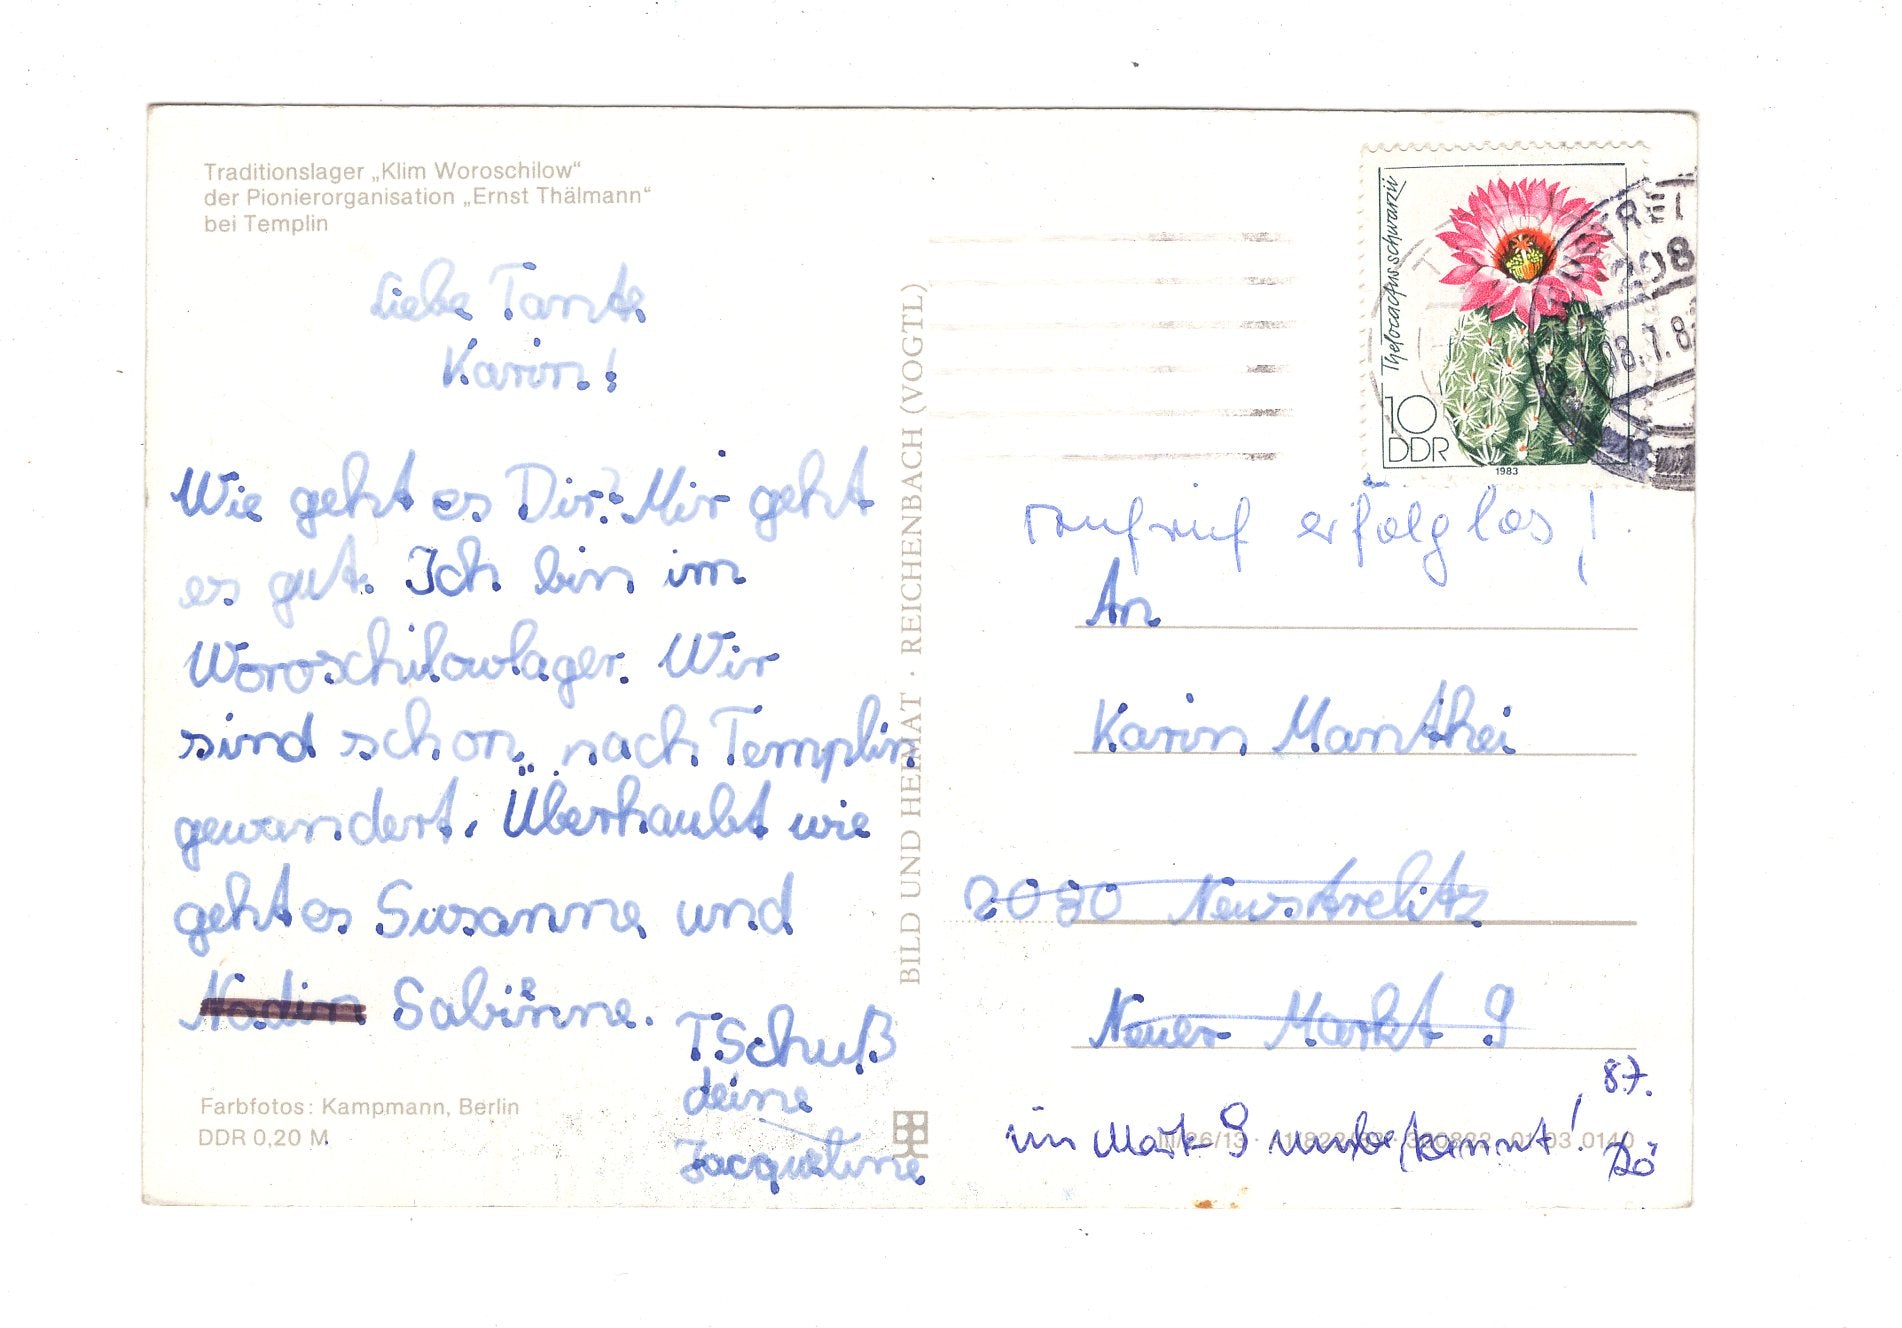 Traditionslager „Klim Woroschilow“
der Pionierorganisation „Ernst Thälmann“
bei Templin
Liebe Tante
Karin!
Wie geht es Dir? Mir geht
es gut. Ich bin im
Woroschilowlager. Wir
sind schon nach Templin
gewandert. Überhaubt wie
geht es Susanne und
Nadin Sabinne.
TSchuß
deine
Jacqueline
Farbfotos: Kampmann, Berlin
DDR 0,20 M
BILD UND HEIMAT · REICHENBACH (VOGTL)
Thelocactus schwarzii
10
DDR
1983
208
08.7.8
erfolglos!
An
Karin Manthei
2080 Neustrelitz
Neuer Markt 9
8.7.
im Markt 9 unbekannt!